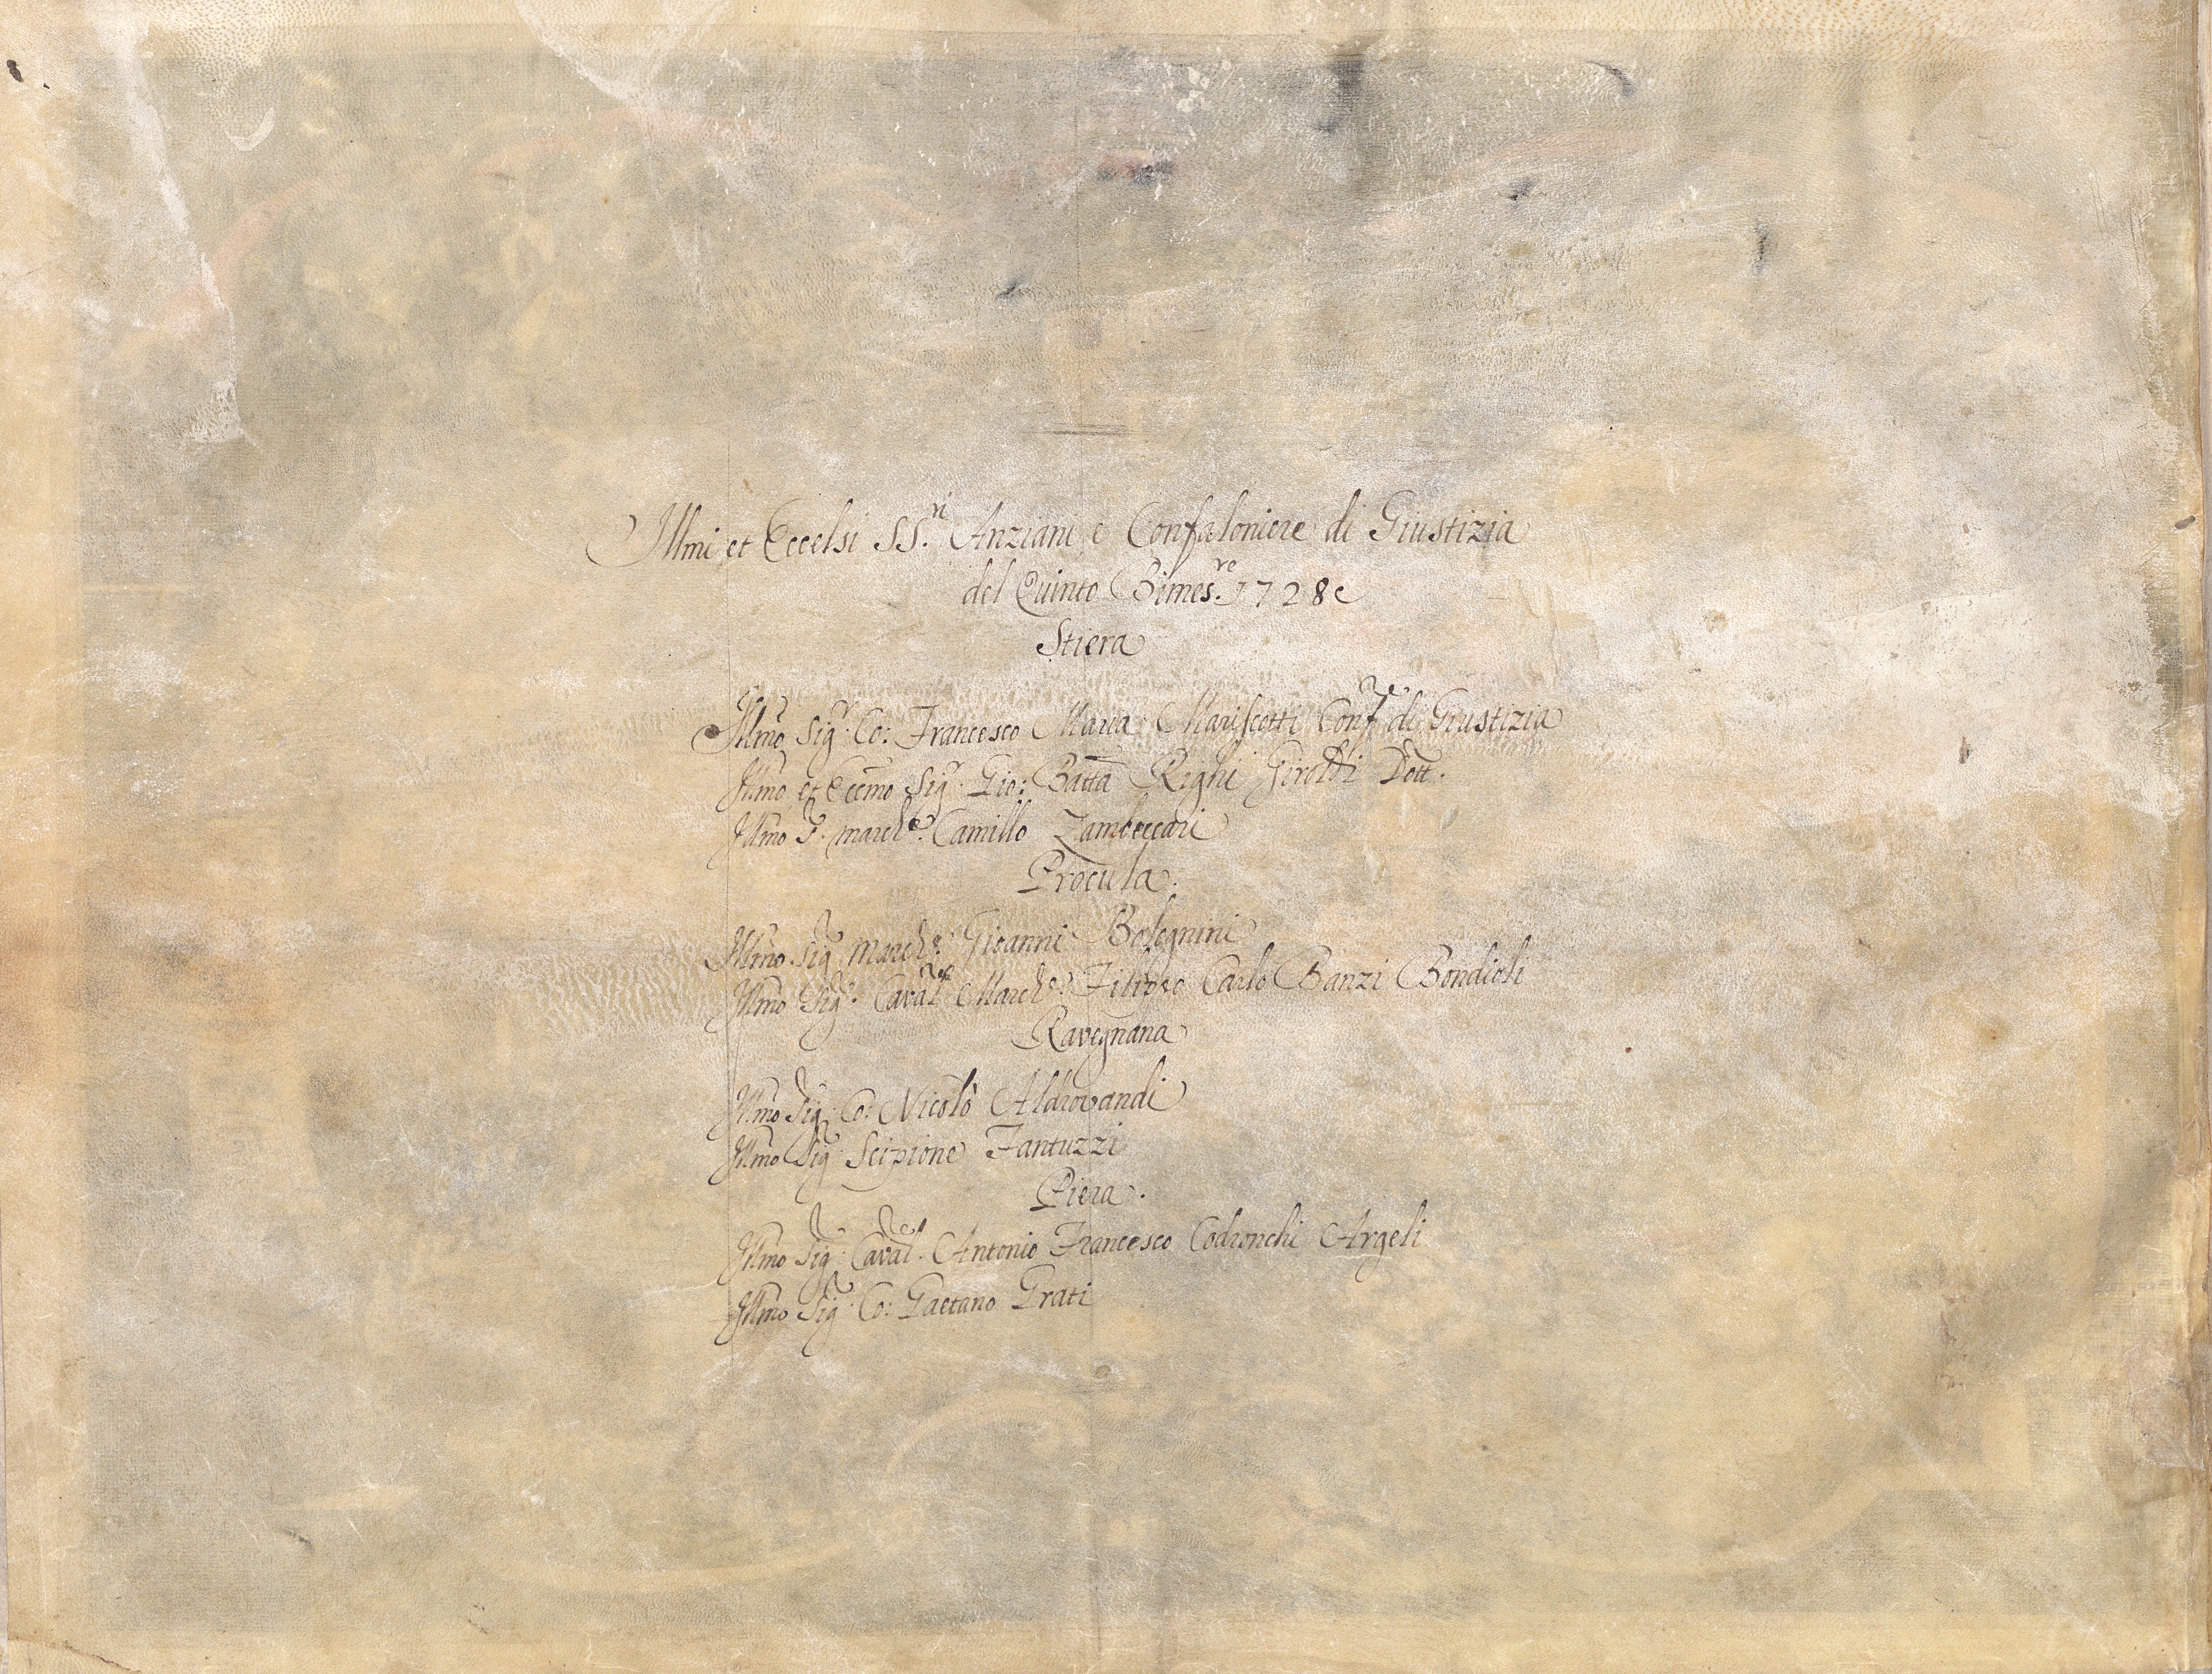 Illmi et Eccelsi SS.ri Anziani e Confaloniere di Giustizia
del Quinto Bimes.re 1728
Stiera
Illmo Sig.r Co: Francesco Maria Mariscotti Conf.re di Giustizia
Illmo et Eccmo Sig.r Gio: Batta Righi Girotti Dott.
Illmo S. March.e Camillo Zambeccari
Procula.
Illmo Sig.r March.e Gioanni Bolognini
Illmo Sig.r Caval.re March.e Filippo Carlo Banzi Bondioli
Ravegnana
Illmo Sig.r Co: Nicolò Aldrovandi
Illmo Sig.r Scipione Fantuzzi
Piera.
Illmo Sig.r Caval.re Antonio Francesco Codronchi Argeli
Illmo Sig.r Co: Gaetano Grati